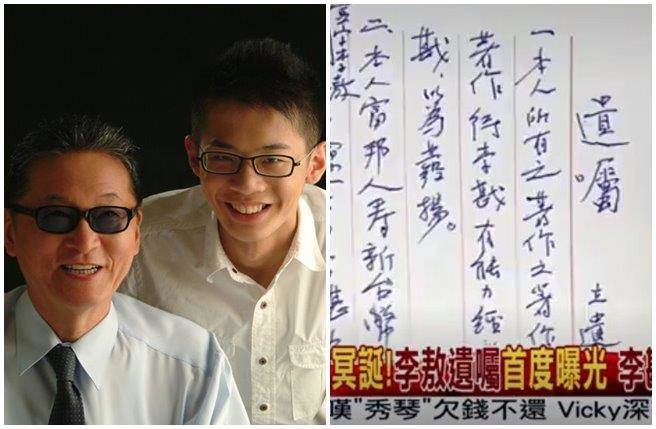 遺囑。
立遺
一、本人所有之著作之著作
著作李戡有能力經
戡,以為發揚。
二、本人富邦人壽新台幣
李敖
冥誕!李敖遺囑首度曝光 李
嘆"秀琴"欠錢不還 Vicky深